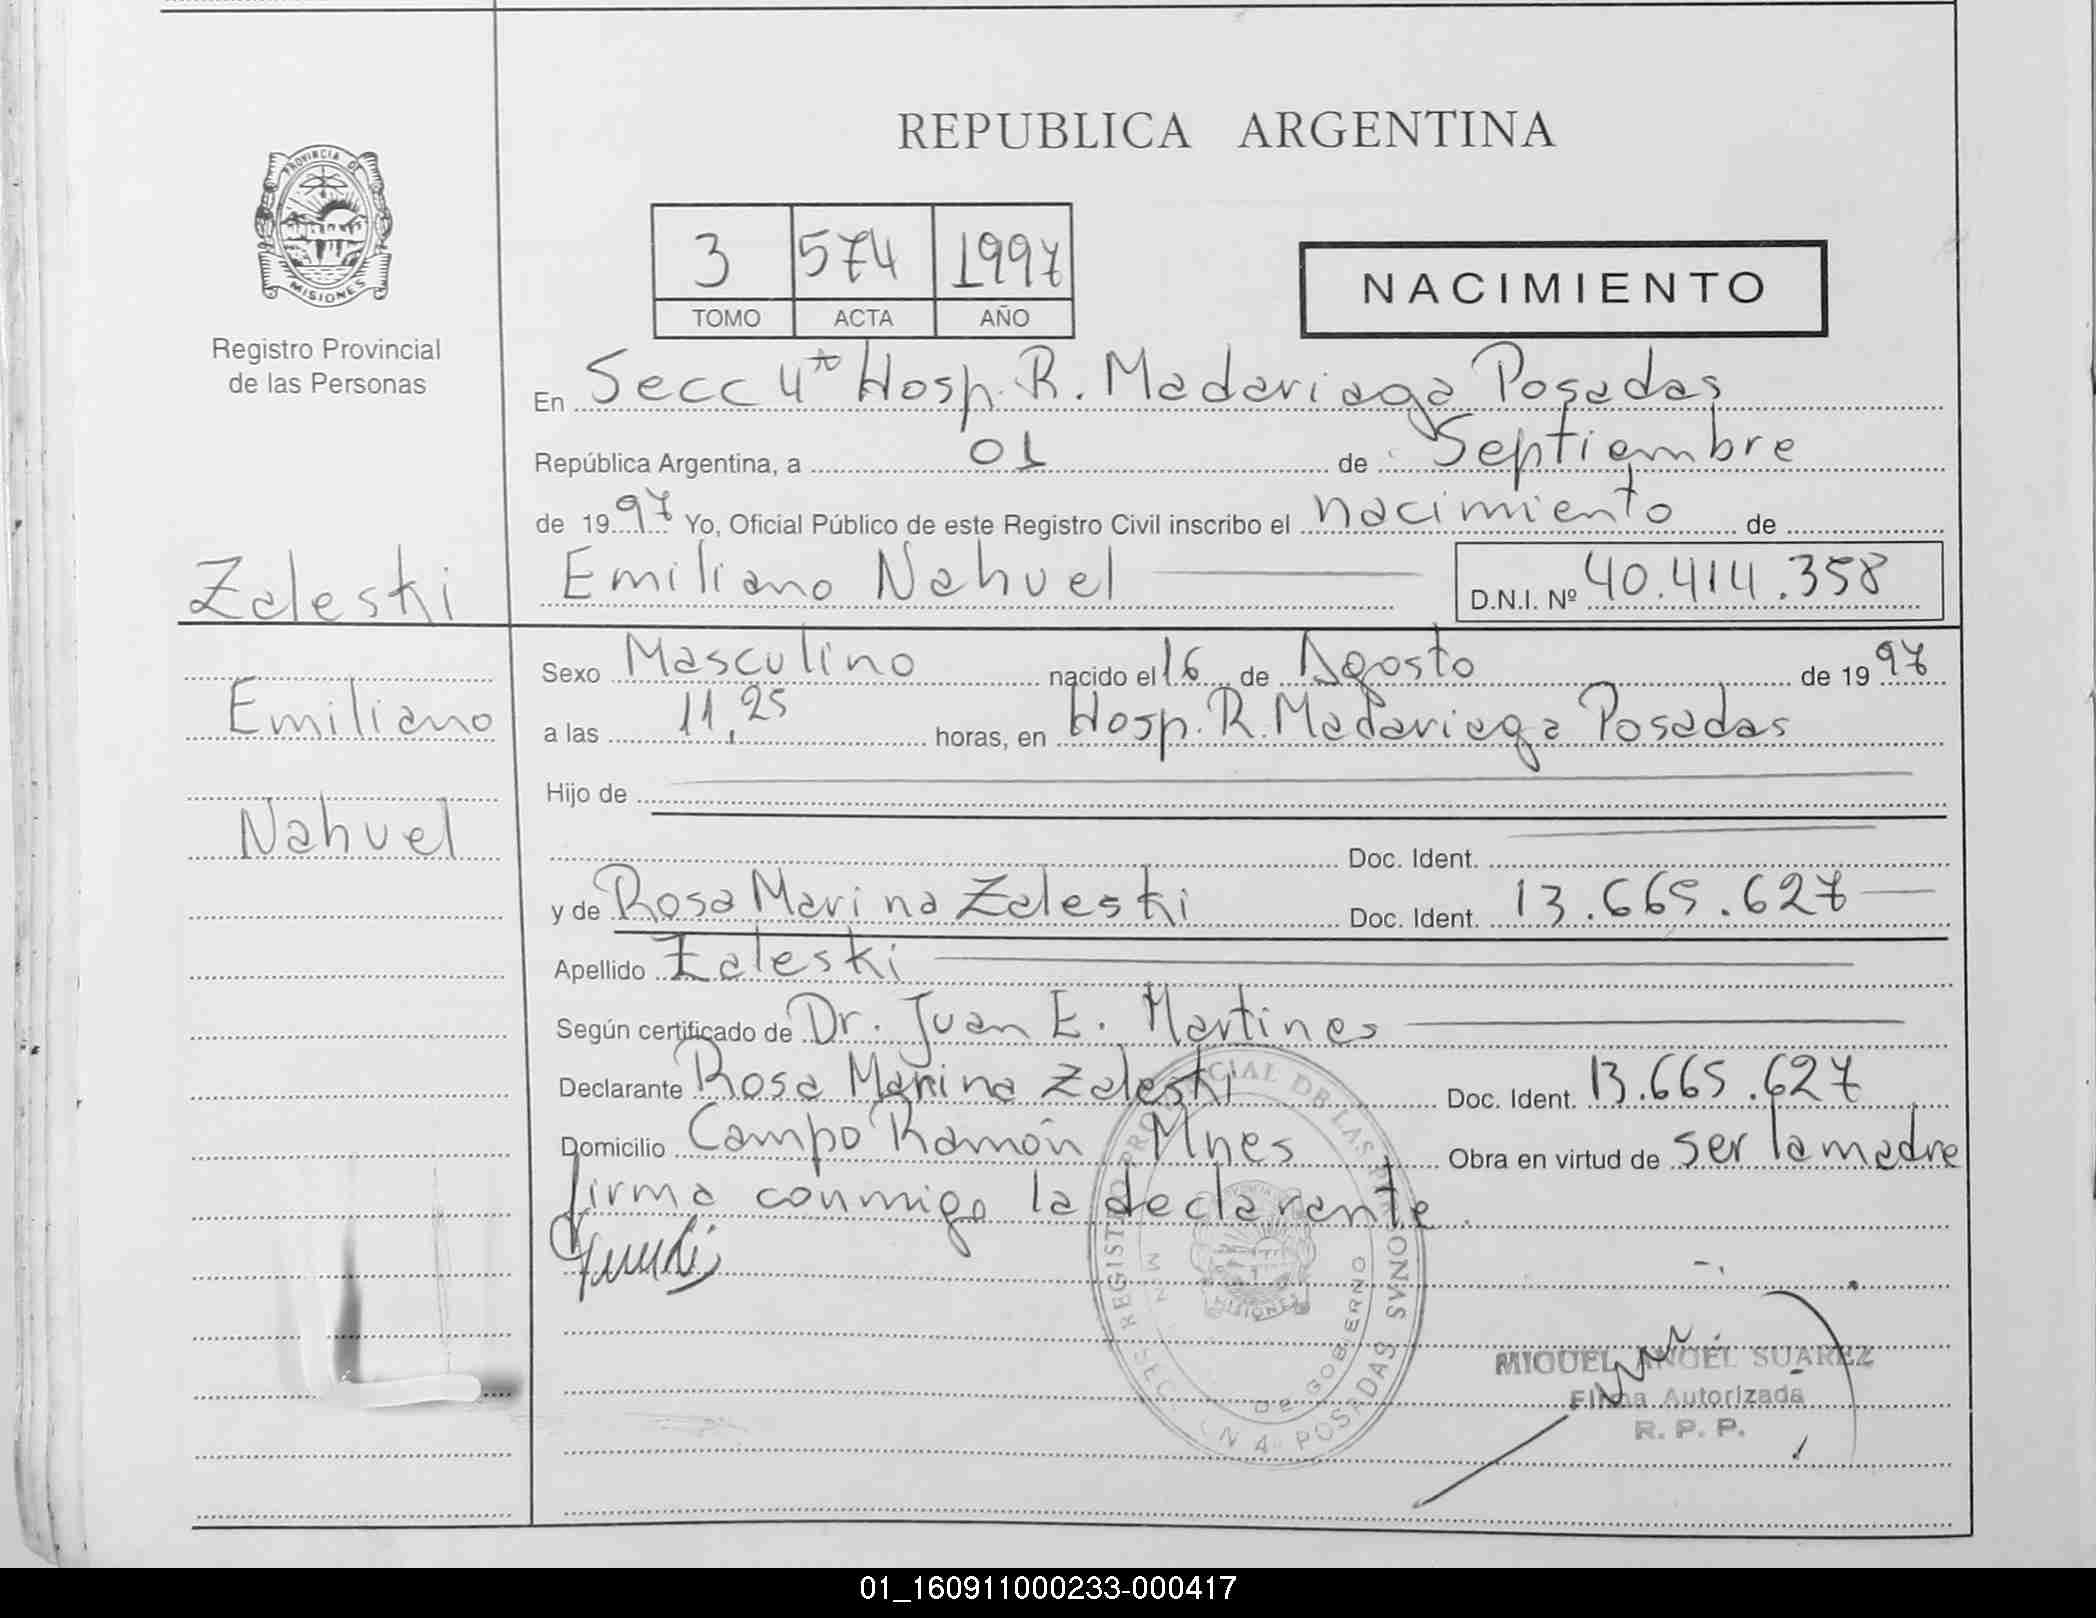 REPUBLICA ARGENTINA
PROVINCIA DE
MISIONES
Registro Provincial
de las Personas
3 574 1997
TOMO ACTA AÑO
NACIMIENTO
En Secc 4ta Hosp. R. Madariaga Posadas
República Argentina, a 01 de Septiembre
de 1997 Yo, Oficial Público de este Registro Civil inscribo el nacimiento de
Zaleski
Emiliano Nahuel
D.N.I. Nº 40.414.358
Emiliano
Nahuel
Sexo Masculino nacido el 16 de Agosto de 1997
a las 11,25 horas, en Hosp. R. Madariaga Posadas
Hijo de
Doc. Ident.
y de Rosa Marina Zaleski Doc. Ident. 13.665.627
Apellido Zaleski
Según certificado de Dr. Juan E. Martines
Declarante Rosa Marina Zaleski Doc. Ident. 13.665.627
Domicilio Campo Ramón Mnes Obra en virtud de ser la madre
firma conmigo la declarante.
REGISTRO PROVINCIAL DE LAS PERSONAS
MISIONES
DE GOBIERNO
4ª POSADAS
MIGUEL ANGEL SUAREZ
Firma Autorizada
R. P. P.
01_160911000233-000417